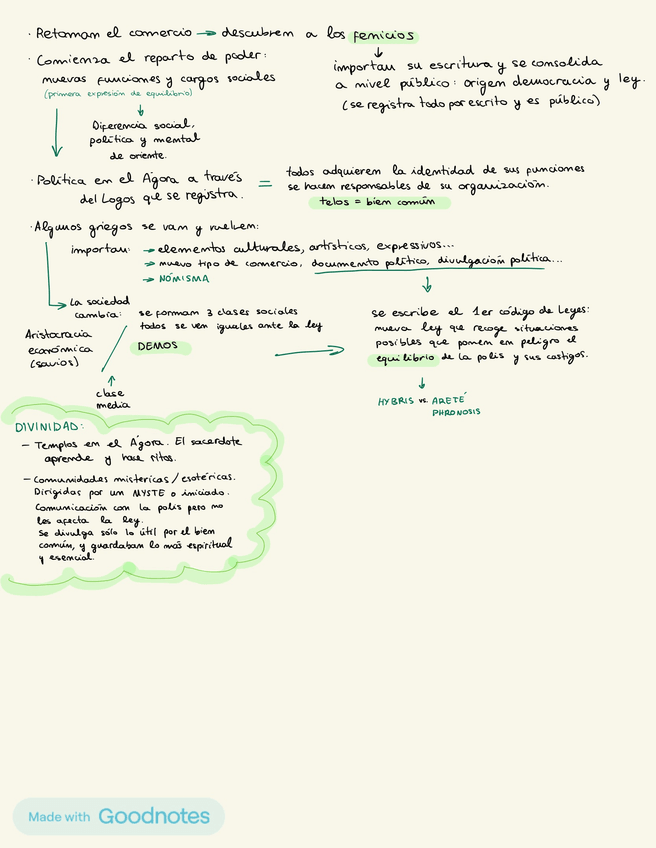 · Retoman el comercio → descubren a los fenicios
importan su escritura y se consolida
a nivel público: origen democracia y ley.
(se registra todo por escrito y es público)
· Comienza el reparto de poder:
nuevas funciones y cargos sociales
(primera expresión de equilibrio)
Diferencia social,
política y mental
de oriente.
· Política en el Ágora a través
del Logos que se registra.
= todos adquieren la identidad de sus funciones
se hacen responsables de su organización.
telos = bien común
· Algunos griegos se van y vuelven:
importan: → elementos culturales, artísticos, expresivos...
→ nuevo tipo de comercio, documento político, divulgación política...
→ NÓMISMA
La sociedad
cambia:
se forman 3 clases sociales
todos se ven iguales ante la ley
DEMOS
Aristocracia
económica
(savios)
clase
media
se escribe el 1er código de Leyes:
nueva ley que recoge situaciones
posibles que ponen en peligro el
equilibrio de la polis y sus castigos.
HYBRIS vs. ARETÉ
PHRONOSIS
DIVINIDAD:
— Templos en el Ágora. El sacerdote
aprende y hace ritos.
— Comunidades mistericas/esotéricas.
Dirigidas por un MYSTE o iniciado.
Comunicación con la polis pero no
les afecta la ley.
Se divulga sólo lo útil por el bien
común, y guardaban lo más espiritual
y esencial.
Made with Goodnotes